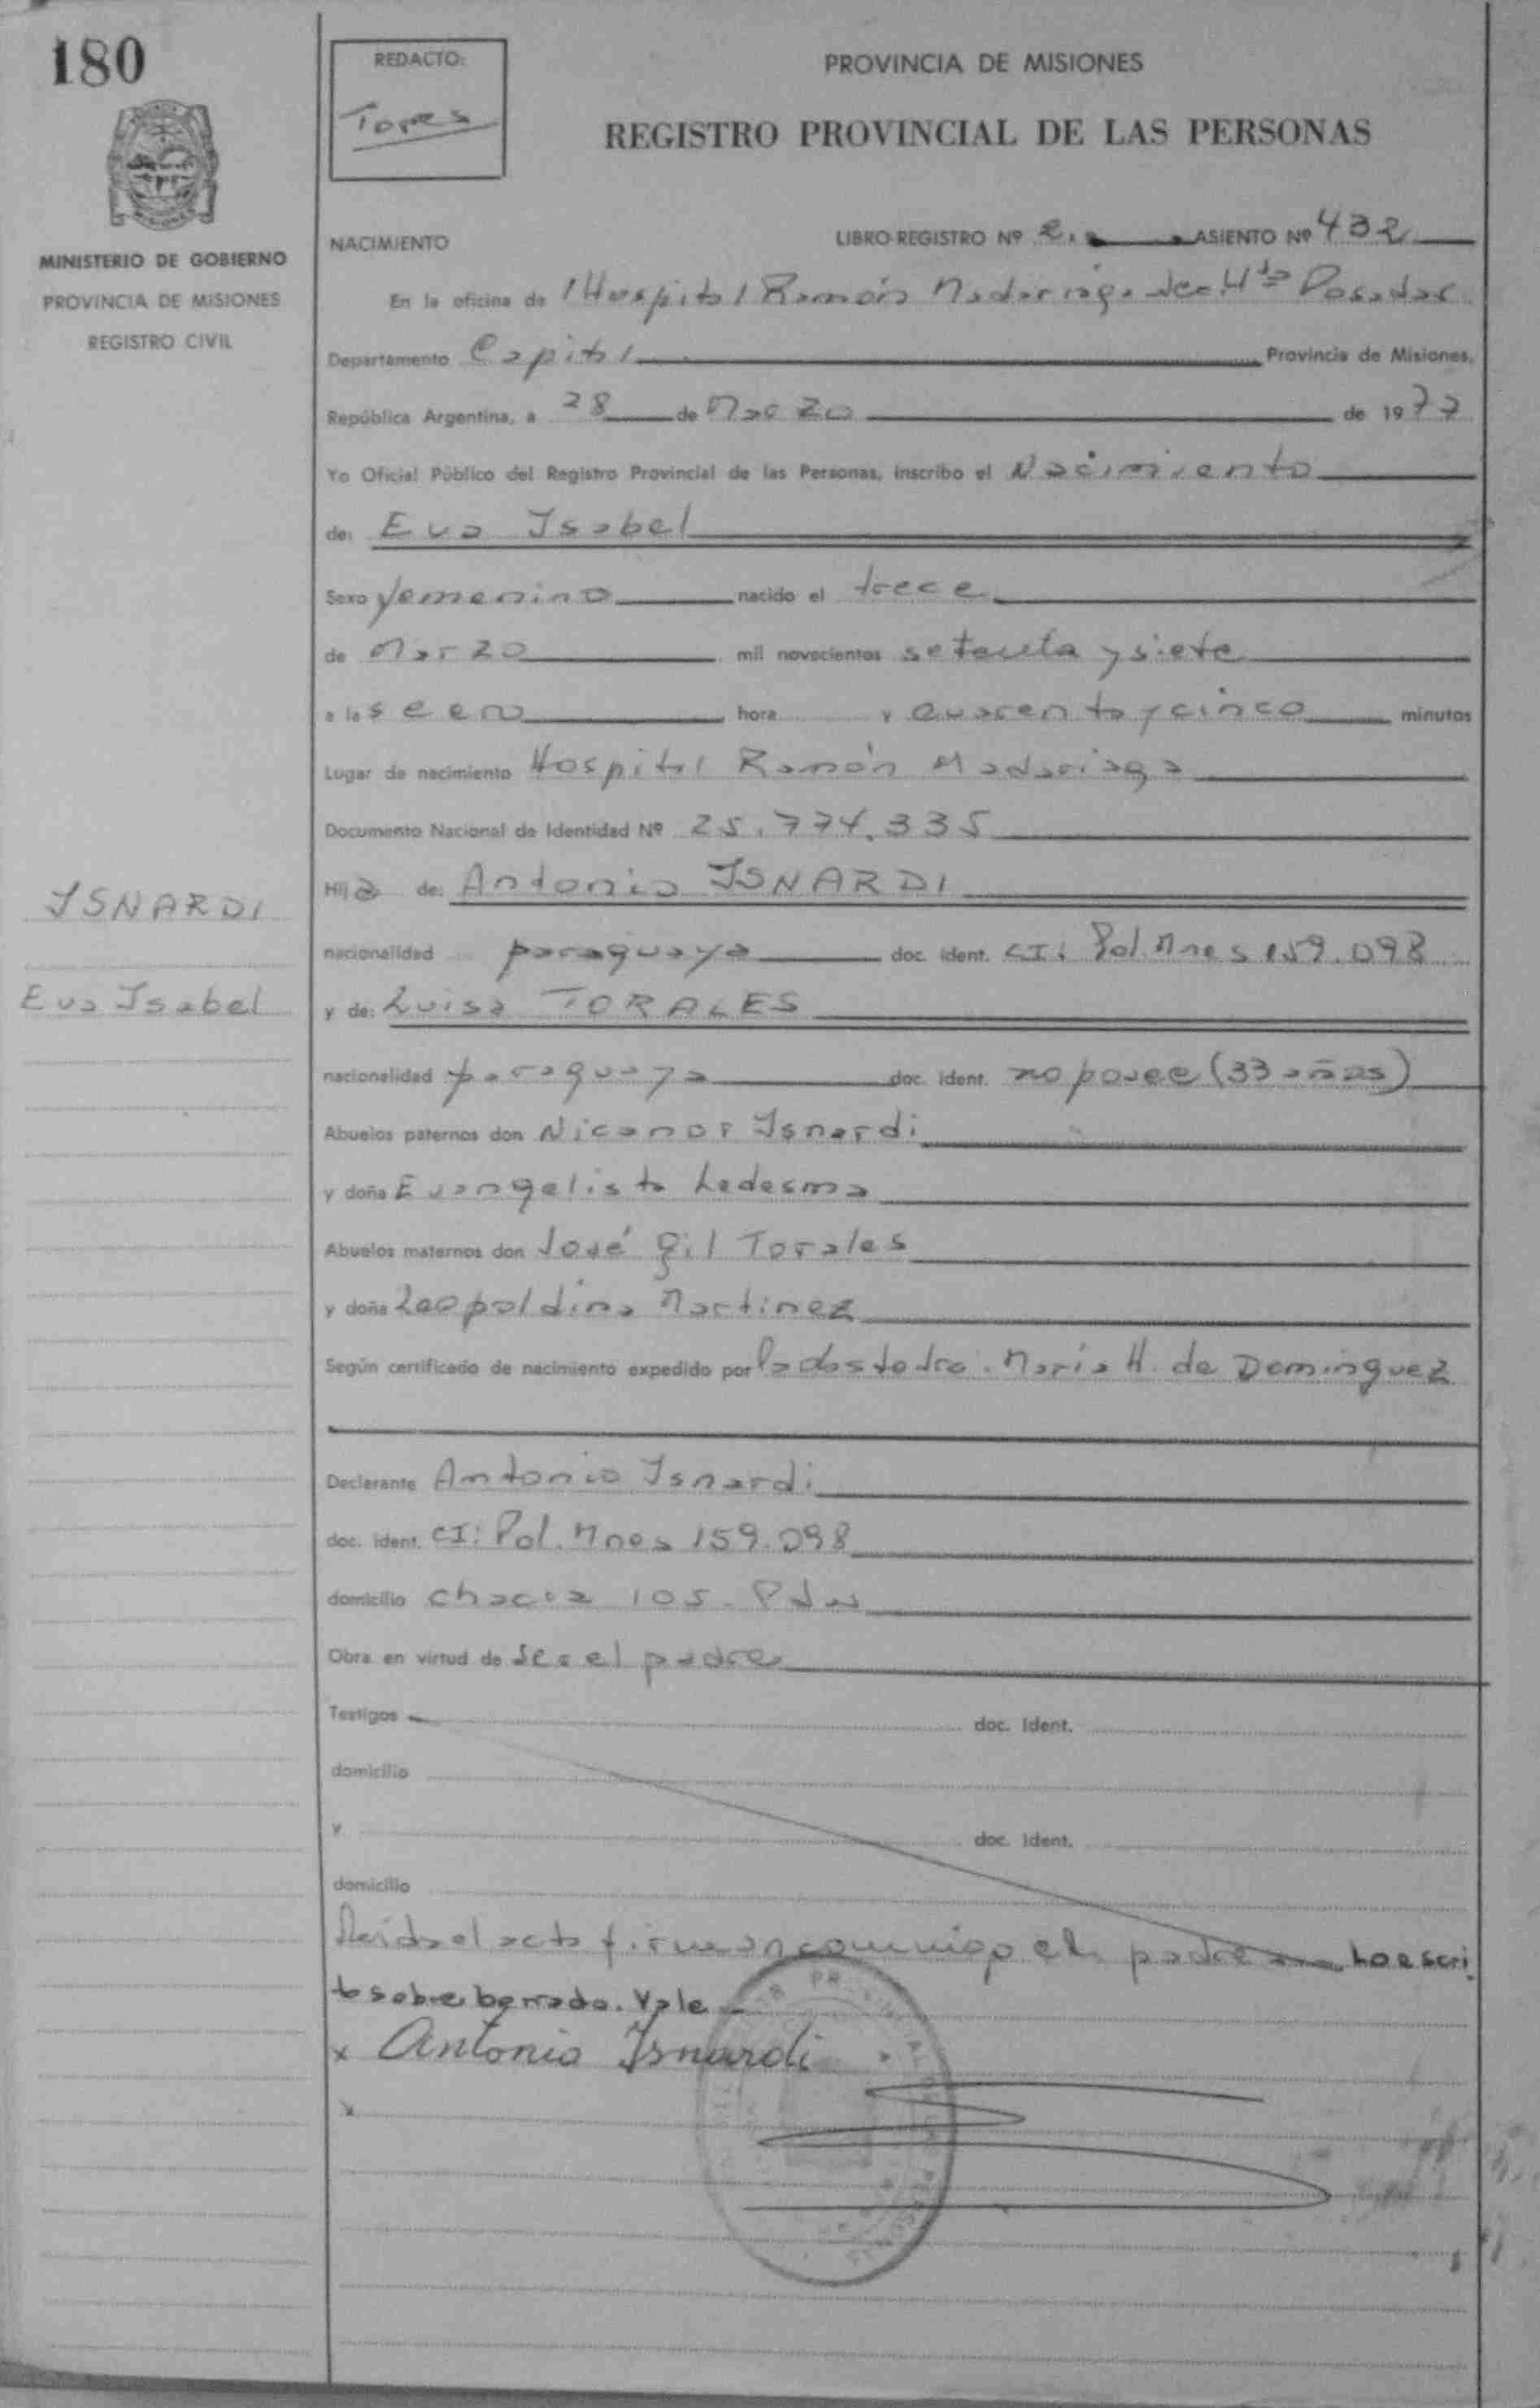 180
REDACTO:
Torres
PROVINCIA DE MISIONES
REGISTRO PROVINCIAL DE LAS PERSONAS
MINISTERIO DE GOBIERNO
PROVINCIA DE MISIONES
REGISTRO CIVIL
NACIMIENTO LIBRO-REGISTRO Nº 2. ASIENTO Nº 432
En la oficina de l Hospital Ramón Madariaga Posadas
Departamento Capital Provincia de Misiones,
República Argentina, a 28 de Marzo de 1977
Yo Oficial Público del Registro Provincial de las Personas, inscribo el Nacimiento
de: Eva Isabel
Sexo femenino nacido el trece
de Marzo mil novecientos setenta y siete
a las cero hora y cuarenta y cinco minutos
Lugar de nacimiento Hospital Ramón Madariaga
Documento Nacional de Identidad Nº 25.774.335
Hija de: Antonio ISNARDI
nacionalidad paraguaya doc. ident. CI: Pol. Mnes 159.098
y de: Luisa TORALES
nacionalidad paraguaya doc. ident. no posee (33 años)
Abuelos paternos don Nicanor Isnardi
y doña Evangelista Ledesma
Abuelos maternos don José Gil Torales
y doña Leopoldina Martinez
Según certificado de nacimiento expedido por la obstetra. María H. de Dominguez
Declarante Antonio Isnardi
doc. ident. CI: Pol. Mnes 159.098
domicilio chacra 105. Pdas
Obra en virtud de ser el padre
Testigos doc. Ident.
domicilio
y doc. Ident.
domicilio
Leida el acta firman conmigo el padre Lo escri
to sobre borrado. Vale
x Antonio Isnardi
x
ISNARDI
Eva Isabel